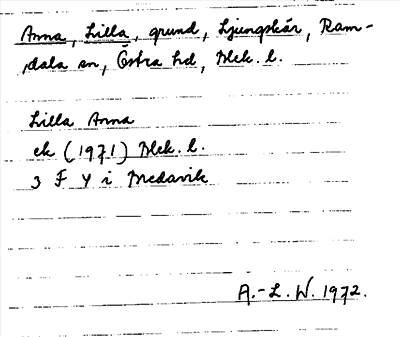 Anna, Lilla, grund, Ljungskär, Ram-
dala sn, Östra hd, Blek. l.
Lilla Anna
ek (1971) Blek. l.
3 F Y i Medavik
A.-L. W. 1972.